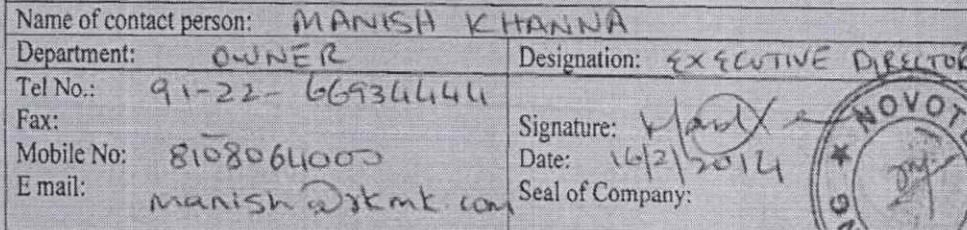 Name of contact person: MANISH KHANNA
Department: OWNER
Designation: EXECUTIVE DIRECTOR
Tel No.: 91-22-66934444
Fax: -
Mobile No: 8108064000
E mail: manish@rkmk.com
Signature:
Date: 16/2/2014
Seal of Company:
NOVOTE